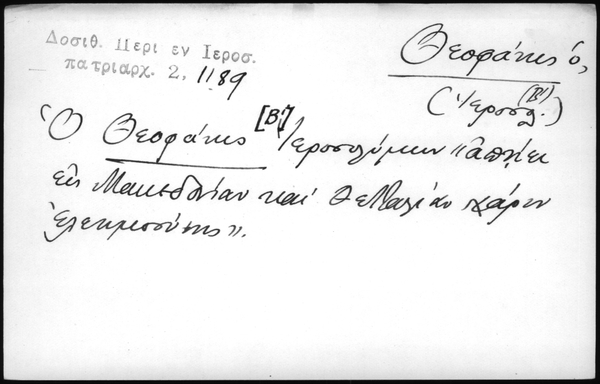 Δοσιθ. Περι εν Ιεροσ.
πατριαρχ. 2, 1189
Θεοφάνης ὁ,
(Ἱεροσολ. (Β'))
Ὁ Θεοφάνης [Β'] Ἱεροσολύμων "ἀπῄει
εἰς Μακεδονίαν καί Θετταλίαν χάριν
ἐλεημοσύνης".